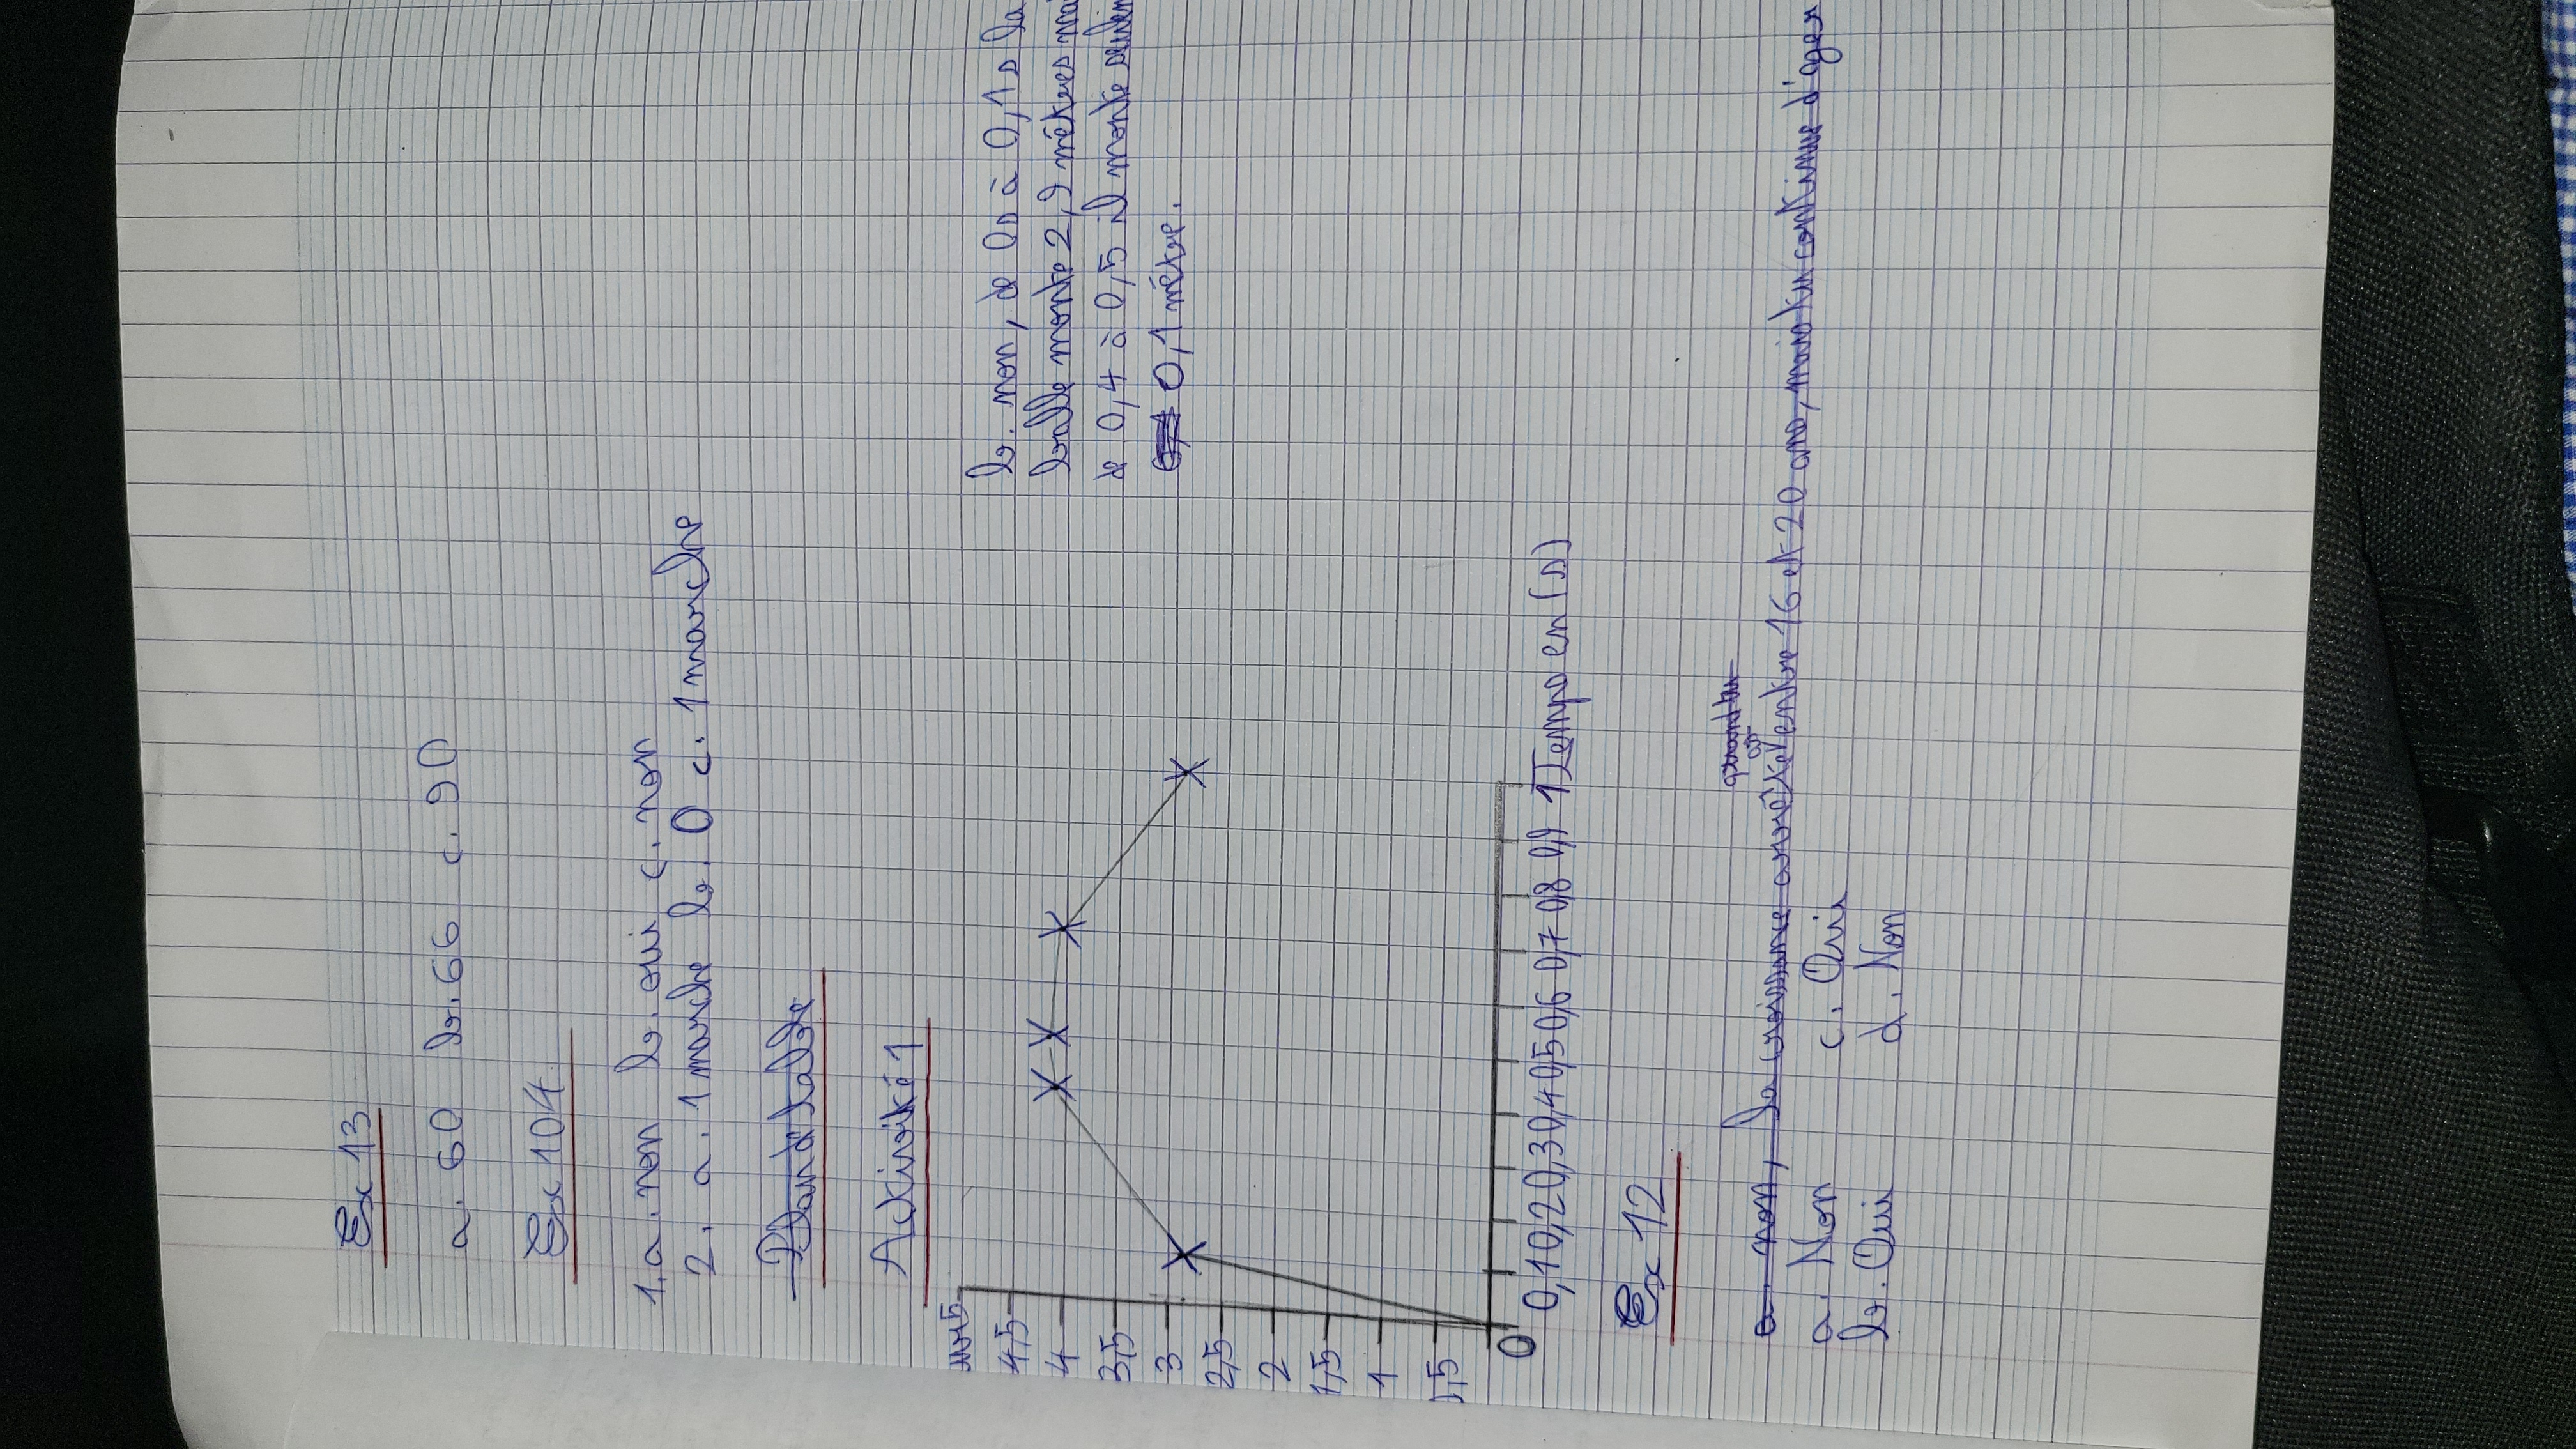 Ex 13
a. 60 b. 66 c. 90
Ex 104
1. a. non b. oui c. non
2. a. 1 marche b. 0 c. 1 marche
Activité 1
5
4,5
4
3,5
3
2,5
2
1,5
1
0,5
0
0,1 0,2 0,3 0,4 0,5 0,6 0,7 0,8 0,9 1 Temps en (s)
b. non, de 0s à 0,1s la
balle monte 2,9 mètres mai
de 0,4 à 0,5 il monte seulem
0,1 mètre.
Ex 12
a. non, la croissance arrêté entre 16 et 20 ans, mais tu continue d'ager
a. Non c. Oui
b. Oui d. Non